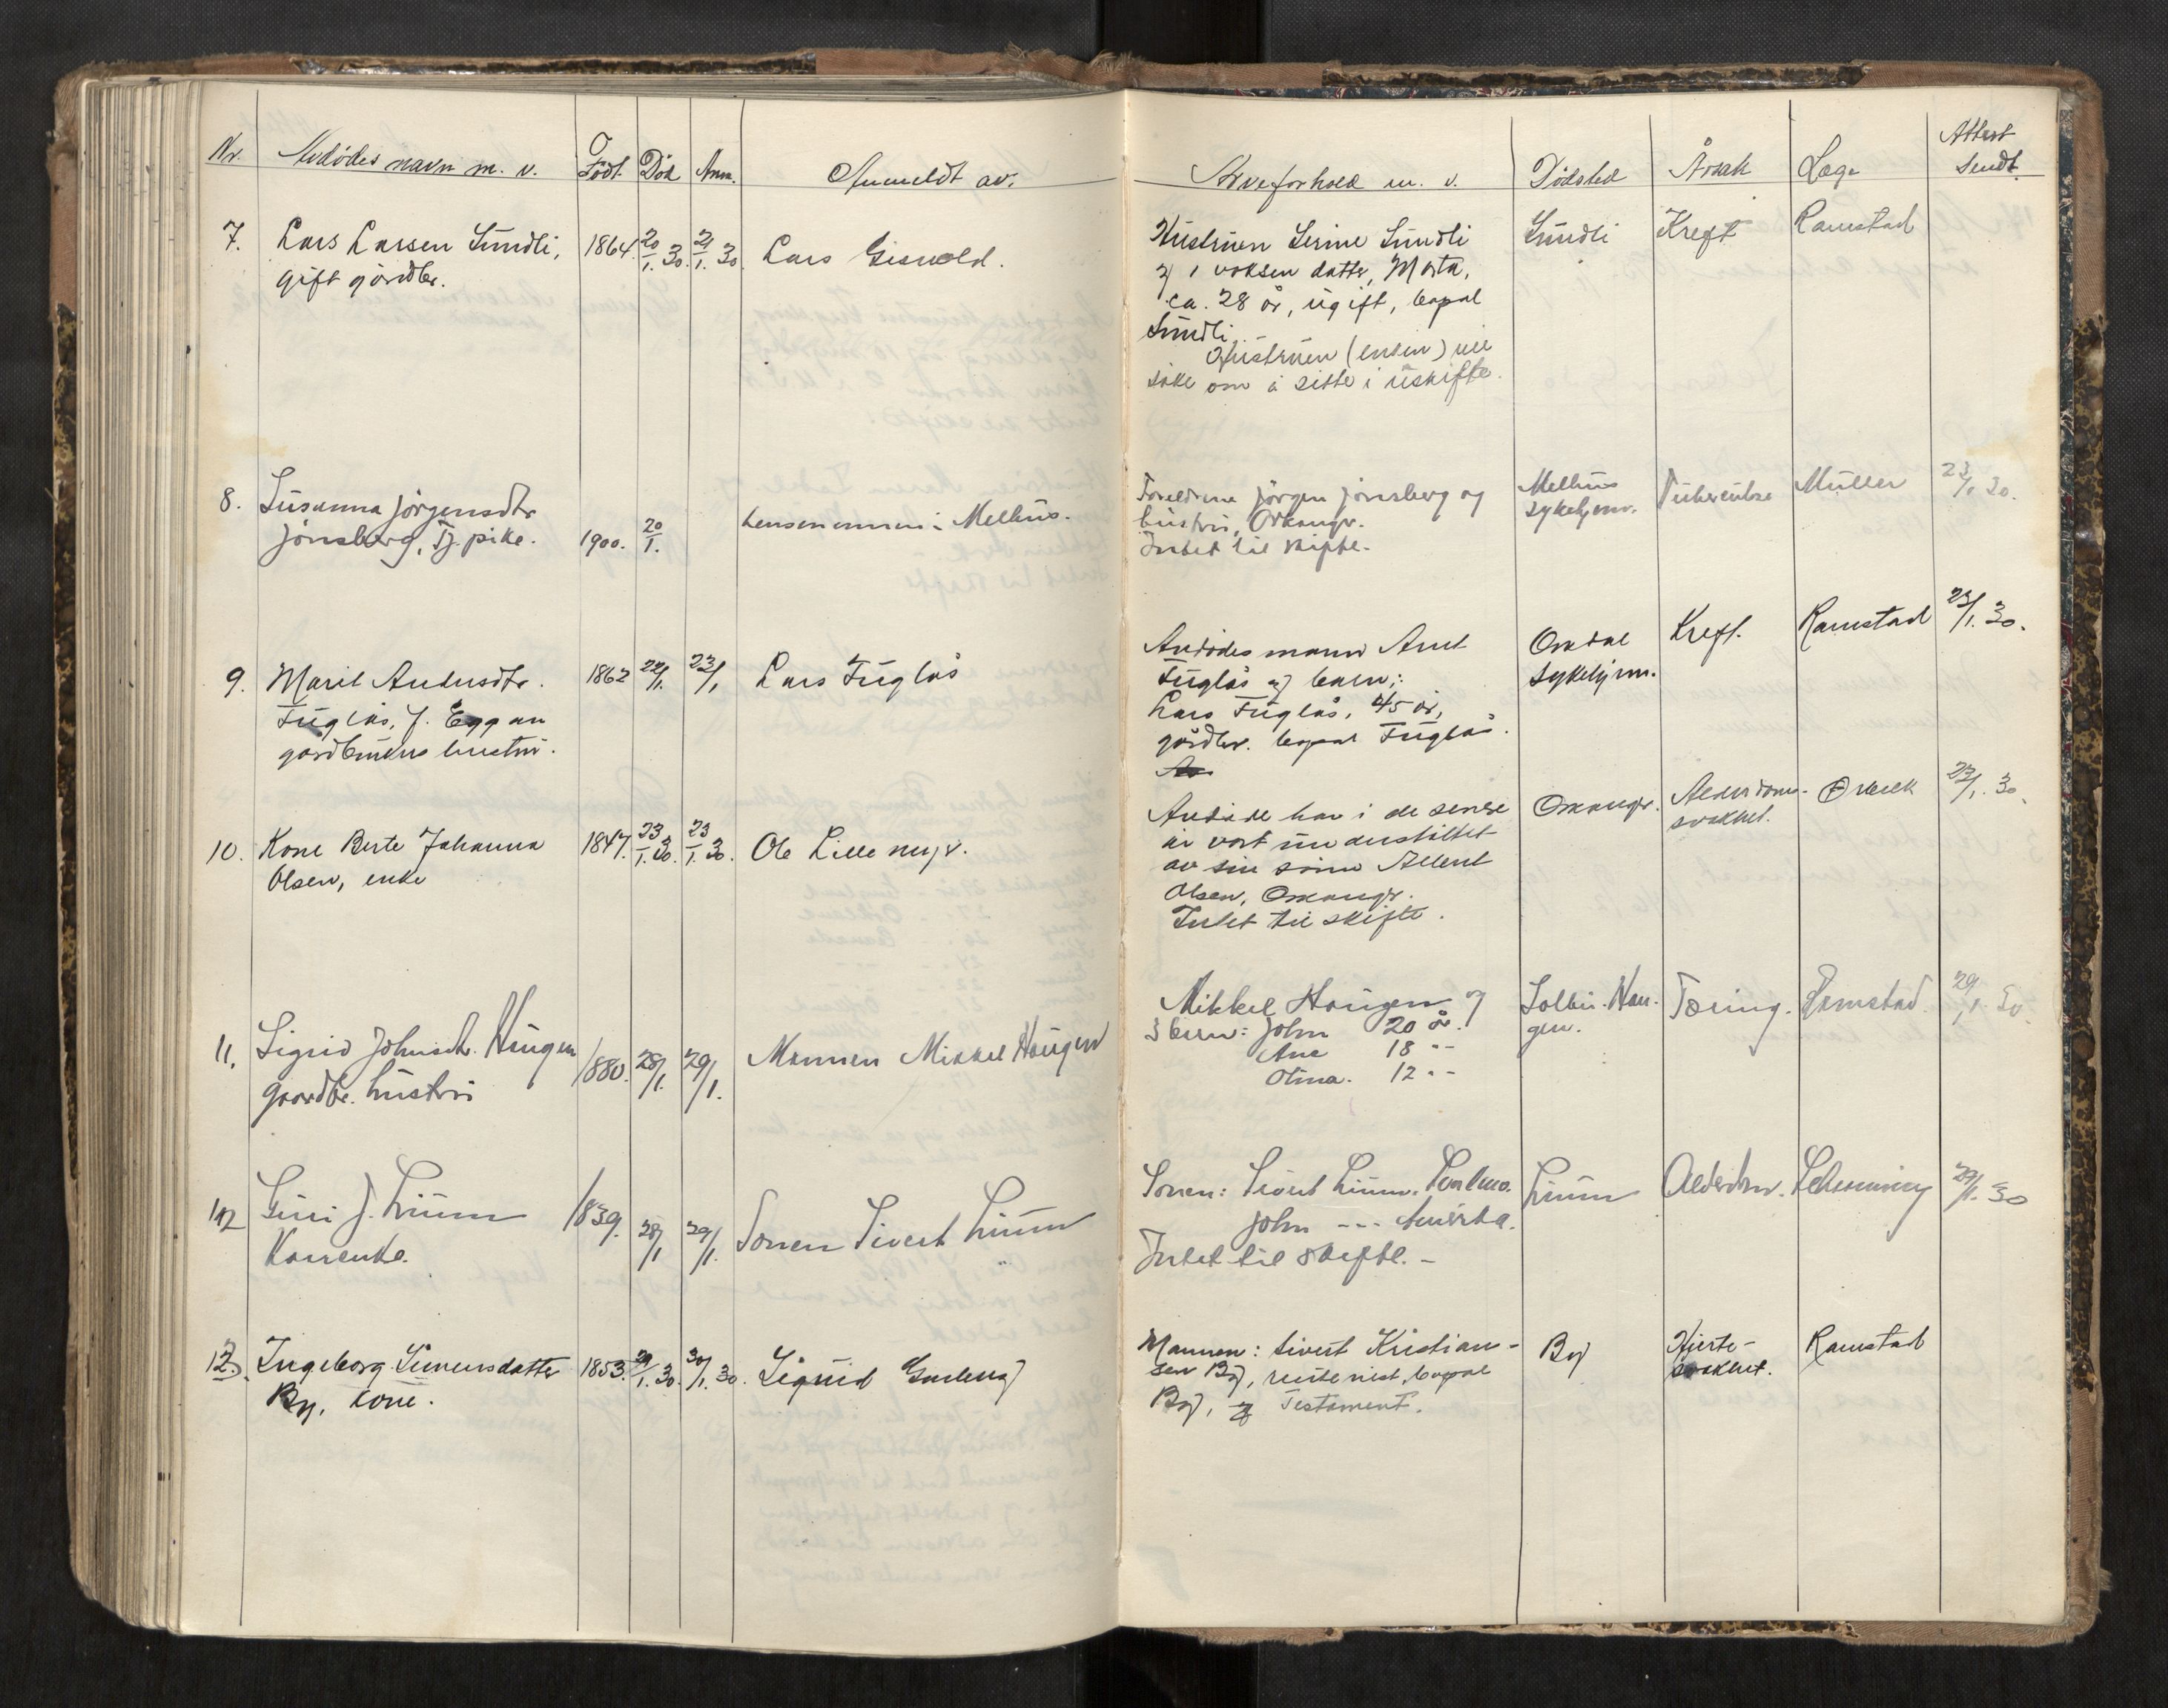 Nr. Avdødes navn m. v. Født. Død Anm. Anmeldt av. Arveforhold m. v. Dødsted Årsak Læge Attest sendt.
7. Lars Larsen Sundli, 1864. 20/1. 30. 21/1. 30. Lars Gisvold. Hustruen Serine Sundli Sundli Kreft Ramstad
gift gårdbr. og 1 voksen datter, Marta,
ca. 28 år, ugift, bopæl
Sundli.
Hustruen (enken) vil
søke om å sitte i uskifte.
8. Susanna Jørgensdtr Foreldrene Jørgen Jønsberg og Melhus Tuberculose Müller 23/1 30.
Jønsberg, Tj. pike. 1900. 20/1. Lensmannen i Melhus. hustru, Orkangr. sykehjem.
Intet til skifte.
9. Marit Andersdtr. 1862 22/1. 23/1 Lars Fuglås Avdødes mann Arnt Orkdal Kreft. Ramstad 23/1. 30.
Fuglås, f. Eggan Fuglås og barn: sykehjem.
gårdbrukers hustru. Lars Fuglås, 45 år,
gårdbr. bopæl Fuglås.
10. Kone Berte Johanna 1847. 23/1. 30. 23/1. 30. Ole Lillemyr. Avdøde har i de senere Orkangr. Alderdoms- 23/1. 30.
Olsen, enke år vært understøttet svakhet.
av sin sønn
Olsen, Orkangr.
Intet til skifte.
11. Sigrid Johnsdtr. Haugen 1880. 28/1. 29/1. Mannen Mikkel Haugen Mikkel Haugen og Solbu. Hau- Tæring. Ramstad 29/1 30.
gaardbr. hustru 3 barn: John 20 år. gen.
Ane 18 "-
Olina. 12 "-
12 Guri J. Liium 1839. 28/1 29/1. Sønnen Sivert Liium Sønnen: Sivert Liium. Liium Alderdom. 29/1. 30
Kårenke. John --- Amerika.
Intet til skifte. -
13. Ingeborg Simensdatter 1853. 29/1. 30. 30/1. 30. Sigurd Mannen: Sivert Kristian- By Hjerte- Ramstad
By, kone. sen By, rentenist, bopæl svakhet.
By, og Testament.